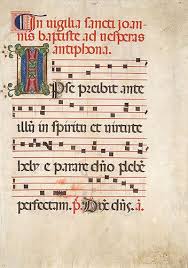 In vigilia sancti ioan
nis baptiste ad vesperas
antiphona.
Ipse preibit ante
illū in spiritu et virtute
hely e parare dño plebē
perfectam. p̄. Dixit dñs. ā.